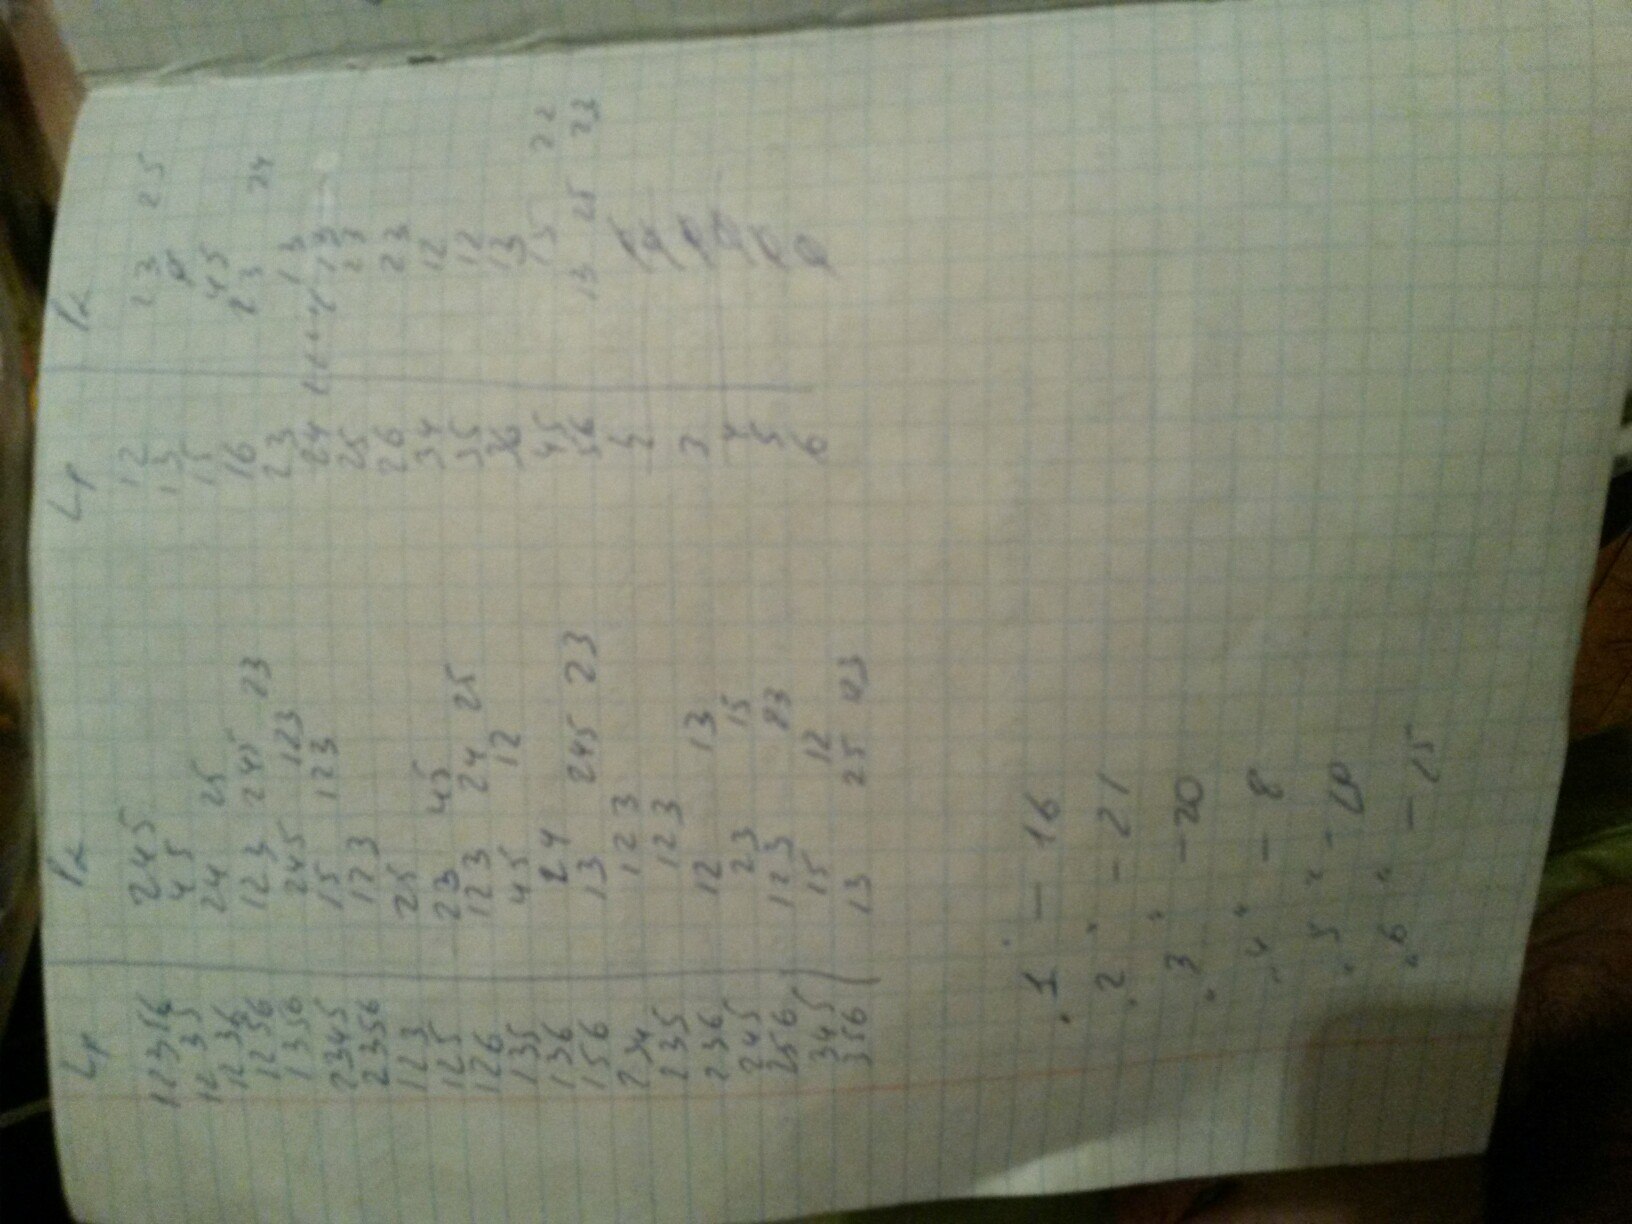 Lp Pz
12356 245
1235 45
1236 24 25
1256 123 245 23
1356 245 123
2345 15 123
2356 123
123 25
125 23 45
126 123 24 25
135 45 12
136 24
156 13 245 23
234 123
235 123
236 12 13
245 23 15
256 123 23
345 15 12
356 13 25 23
Lp Pz
12 23 25
13
15 45
16 23 24
23 13
24 13
25 23
26 23
34 12
35 12
36 13
45 15 22
56 13 25 23
2
3
4
5
6
"1" – 16
"2" – 21
"3" – 20
"4" – 8
"5" –
"6" – 15